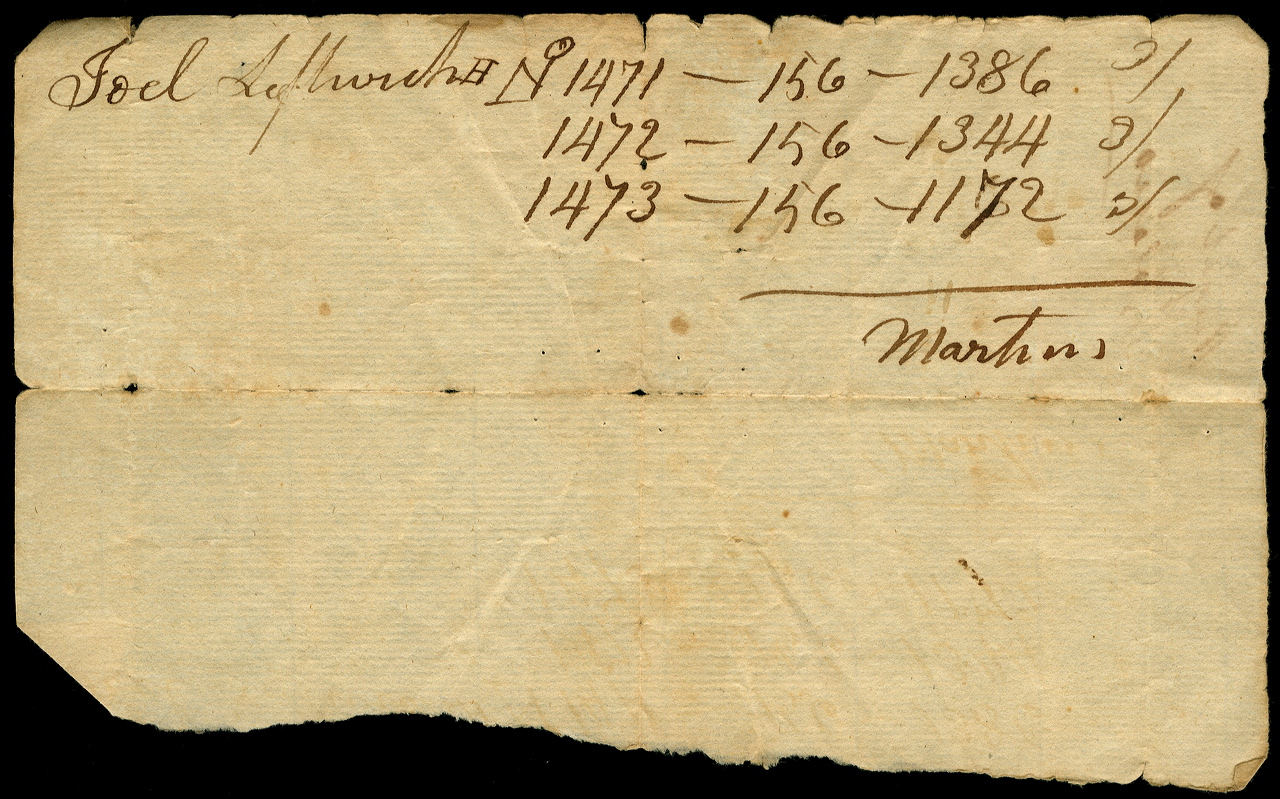 Joel Leftwich H No 1471 — 156 — 1386 3/
1472 — 156 — 1344 3/
1473 — 156 — 1172 3/
Martins